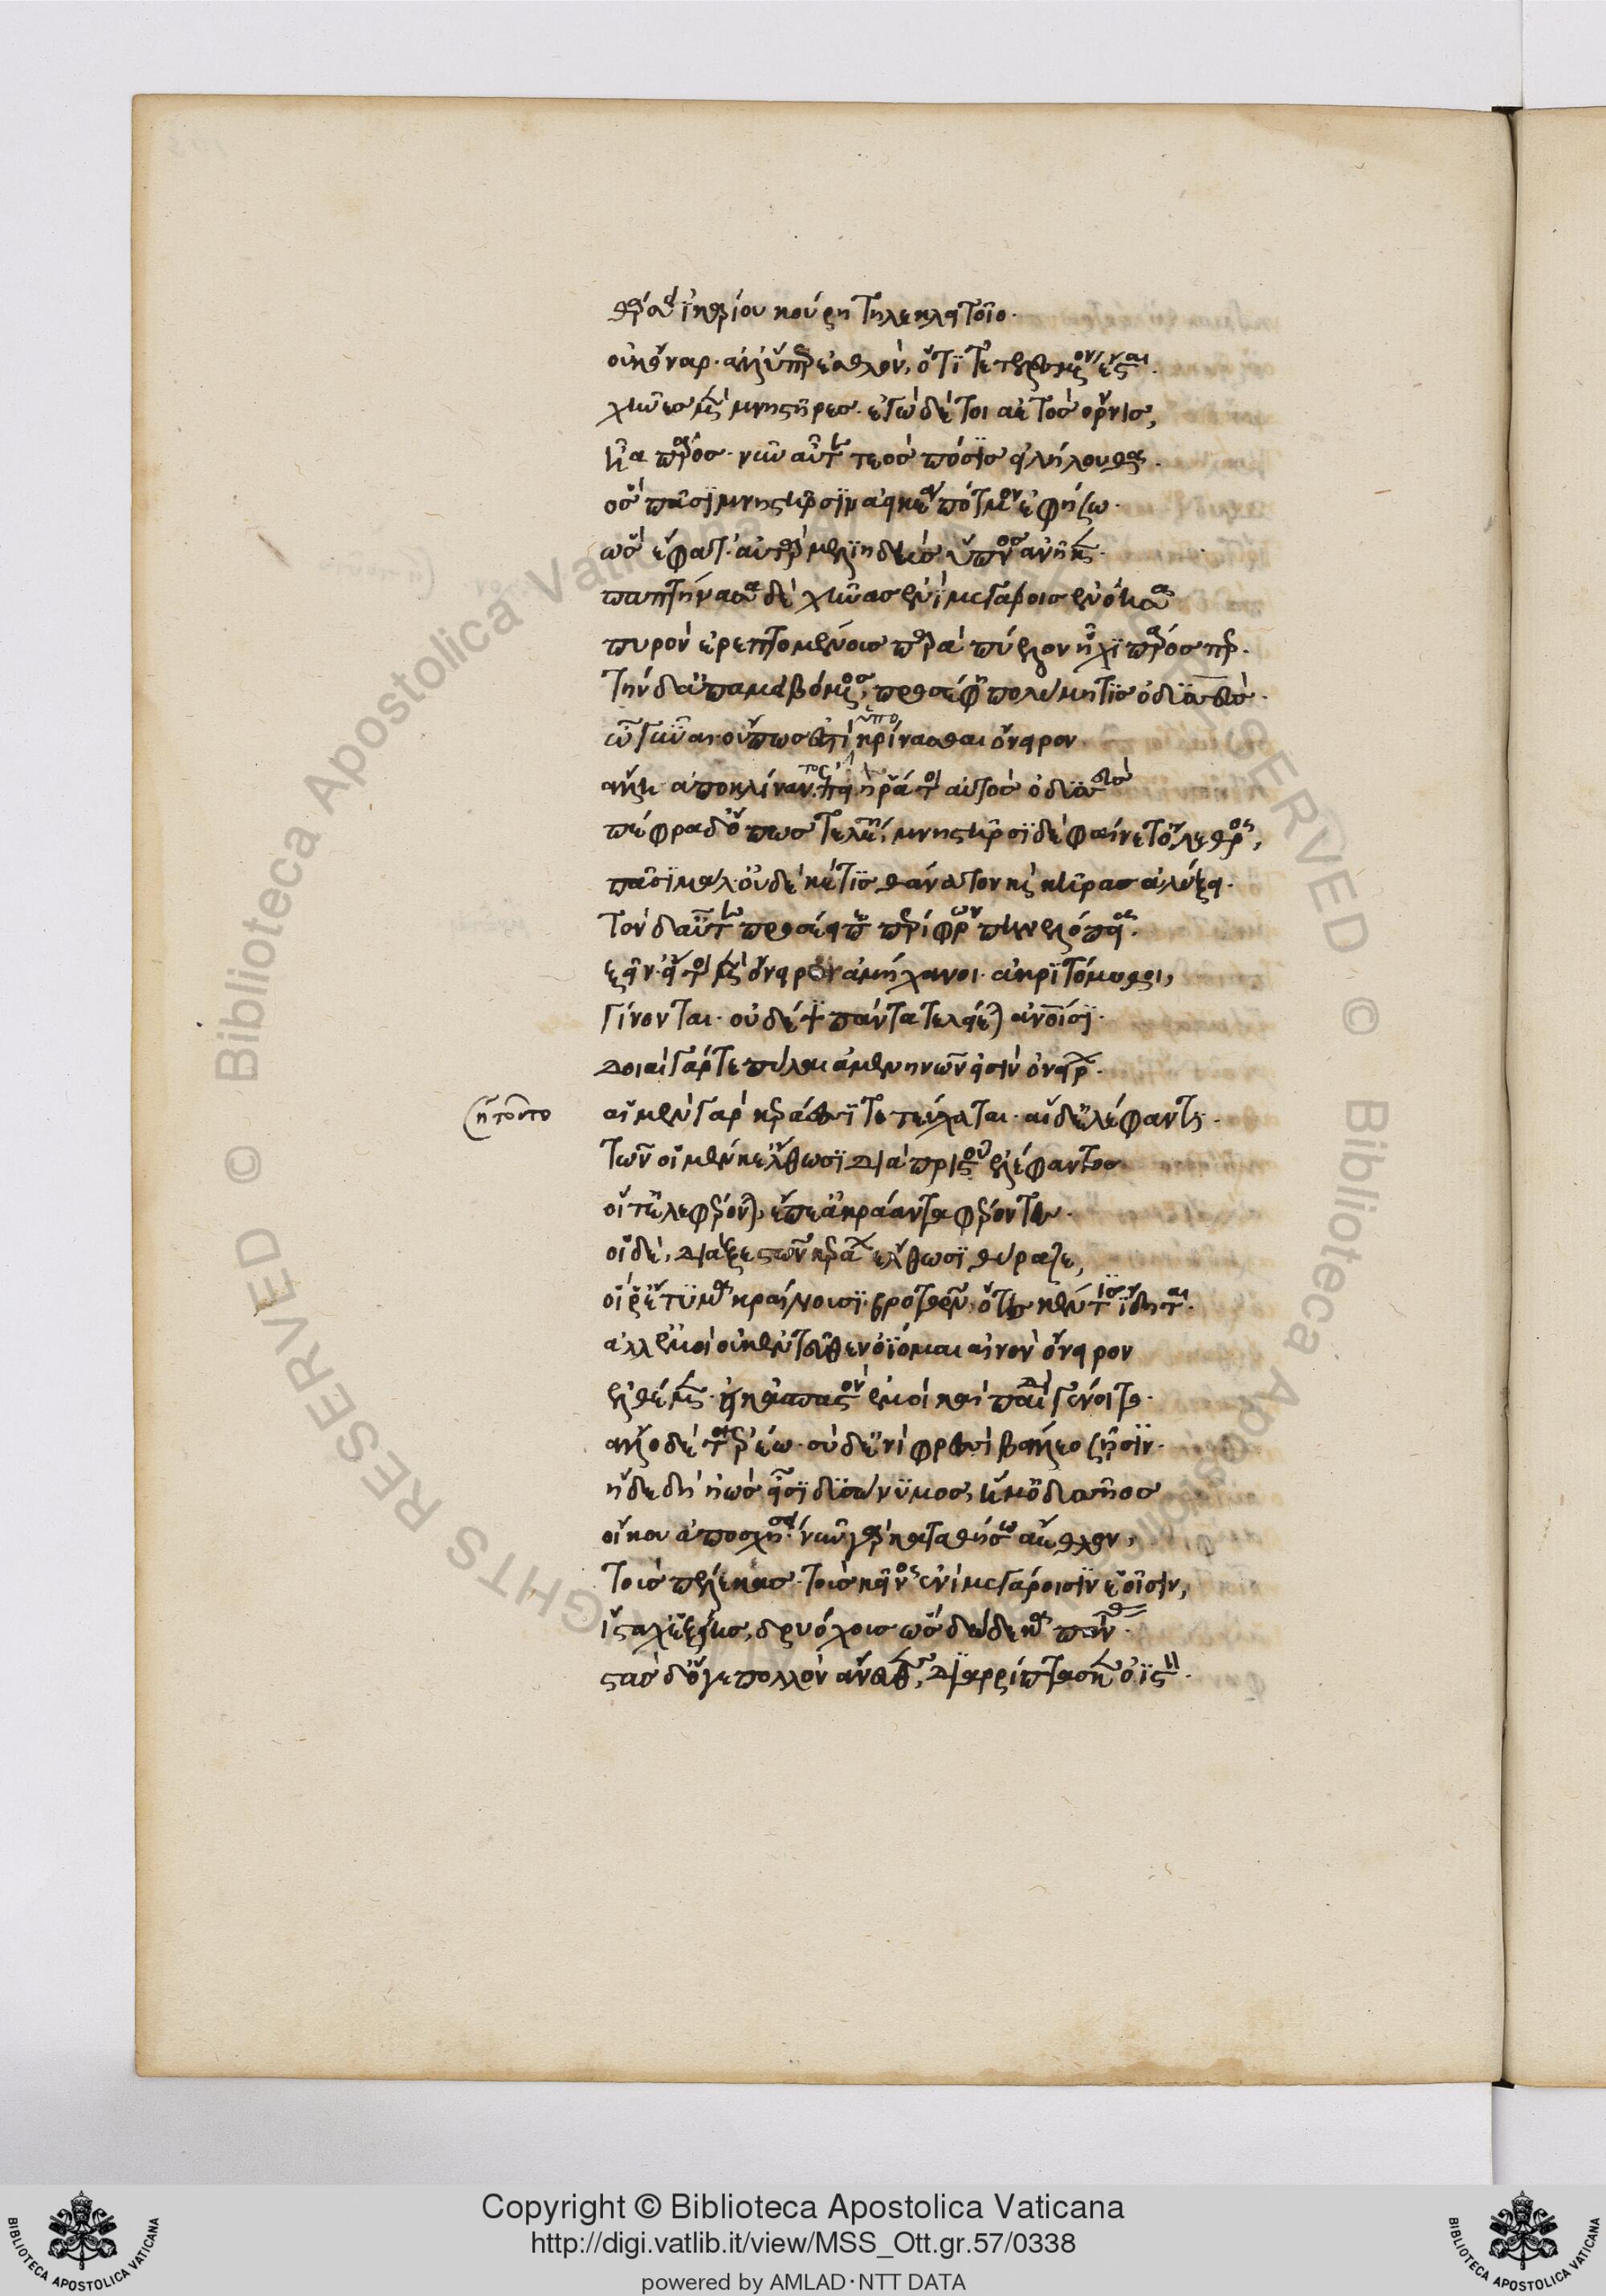 θάρσει ἰκαρίου κούρη τηλεκλειτοῖο·
οὐκ ὄναρ· ἀλλ' ὕπαρ ἐσθλὸν, ὅ τι τετελεσμένον ἔσται·
χῆνες μὲν μνηστῆρες· ἐγὼ δέ τοι αἰετὸς ὄρνις,
ἦα πάρος· νῦν αὖτε τεὸς πόσις εἰλήλουθα·
ὃς πᾶσι μνηστῆρσιν ἀεικέα πότμον ἐφήσω·
ὣς ἔφατ'· αὐτὰρ ἐμὲ μελιηδὴς ὕπνος ἀνῆκε·
παπτήνασα δὲ χῆνας ἐνὶ μεγάροις ἐνόησα
πυρὸν ἐρεπτομένους παρὰ πύελον ἧχι πάρος περ·
τὴν δ' ἀπαμειβόμενος, προσέφη πολύμητις ὀδυσσεύς·
ὦ γύναι οὔπως ἐστὶ ὑπο κρίνασθαι ὄνειρον
ἄλλῃ ἀποκλίναντ'· ἐπειὴ ῥά τοι αὐτὸς ὀδυσσεὺς
πέφραδ' ὅπως τελέει, μνηστῆρσι δὲ φαίνετ' ὄλεθρος,
πᾶσι μάλ'· οὐδέ κέ τις θάνατον καὶ κῆρας ἀλύξει·
τὸν δ' αὖτε προσέειπε περίφρων πηνελόπεια·
ξεῖν'· ἤτοι μὲν ὄνειροι ἀμήχανοι ἀκριτόμυθοι,
γίνονται· οὐδέ τι πάντα τελείεται ἀνθρώποισι·
δοιαὶ γάρ τε πύλαι ἀμενηνῶν εἰσὶν ὀνείρων·
(ἡ τοῦτο
αἱ μὲν γὰρ κεράεσσι τετεύχαται· αἱ δ' ἐλέφαντι·
τῶν οἳ μέν κ' ἔλθωσι διὰ πριστοῦ ἐλέφαντος
οἵ τ' ἐλεφαίρονται, ἔπε' ἀκράαντα φέροντες·
οἳ δὲ, διὰ ξεστῶν κεράων ἔλθωσι θύραζε,
οἵ ῥ' ἔτυμα κραίνουσι· βροτῶν ὅτε κέν τις ἴδηται·
ἀλλ' ἐμοὶ οὐκ ἐντεῦθεν ὀΐομαι αἰνὸν ὄνειρον
ἐλθέμεν· ἦ κ' ἀσπαστὸν ἐμοὶ καὶ παιδὶ γένοιτο·
ἄλλο δέ τοι ἐρέω· σὺ δ' ἐνὶ φρεσὶ βάλλεο σῇσιν·
ἥδε δὴ ἠὼς εἶσι δυσώνυμος, ἥ μ' ὀδυσῆος
οἴκου ἀποσχήσει· νῦν γὰρ καταθήσω ἄεθλον,
τοὺς πελέκεας· τοὺς κεῖνος ἐνὶ μεγάροισιν ἑοῖσιν,
ἵστασχ' ἑξείης, δρυόχους ὣς δώδεκα πάντας·
στὰς δ' ὅγε πολλὸν ἄνευθε, διαρρίπτασκεν ὀϊστόν·
Copyright © Biblioteca Apostolica Vaticana
http://digi.vatlib.it/view/MSS_Ott.gr.57/0338
powered by AMLAD·NTT DATA